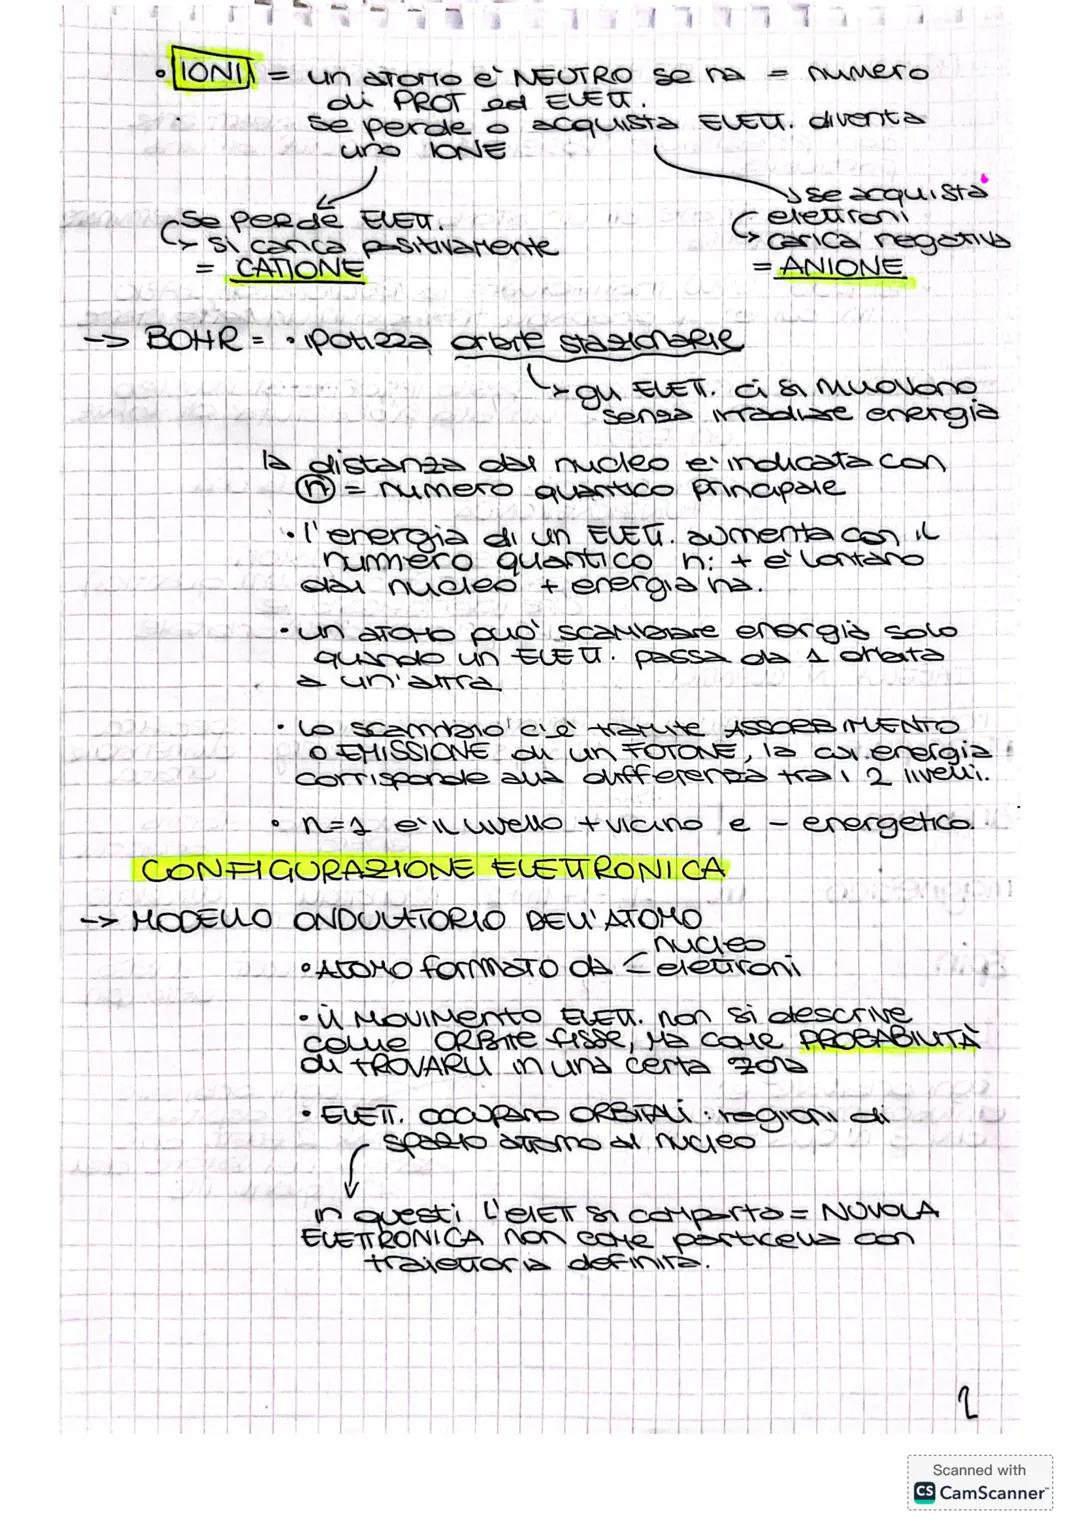 • IONI = un atomo è NEUTRO se ha = numero
di PROT ed ELETT.
se perde o acquista ELETT. diventa
uno IONE
se perde ELETT.
↳ si carica positivamente
= CATIONE
se acquista
elettroni
↳ carica negativa
= ANIONE
-> BOHR = • ipotizza orbite stazionarie
↳ gli ELETT. ci si muovono
senza irradiare energia
la distanza dal nucleo è indicata con
n = numero quantico principale
• l'energia di un ELETT. aumenta con il
numero quantico n: + è lontano
dal nucleo + energia ha.
• un atomo può scambiare energia solo
quando un ELETT. passa da 1 orbita
a un'altra
• lo scambio c'è tramite ASSORBIMENTO
O EMISSIONE di un FOTONE, la cui energia
corrisponde alla differenza tra i 2 livelli.
• n=1 è il livello + vicino e - energetico.
CONFIGURAZIONE ELETTRONICA
-> MODELLO ONDULATORIO DELL'ATOMO
• ATOMO formato da < nucleo
elettroni
• il MOVIMENTO ELETT. non si descrive
come ORBITE fisse, ma come PROBABILITÀ
di TROVARLI in una certa zona
• ELETT. occupano ORBITALI: regioni di
spazio attorno al nucleo
in questi l'ELETT si comporta = NUVOLA
ELETTRONICA non come particella con
traiettoria definita.
2
Scanned with
CS CamScanner